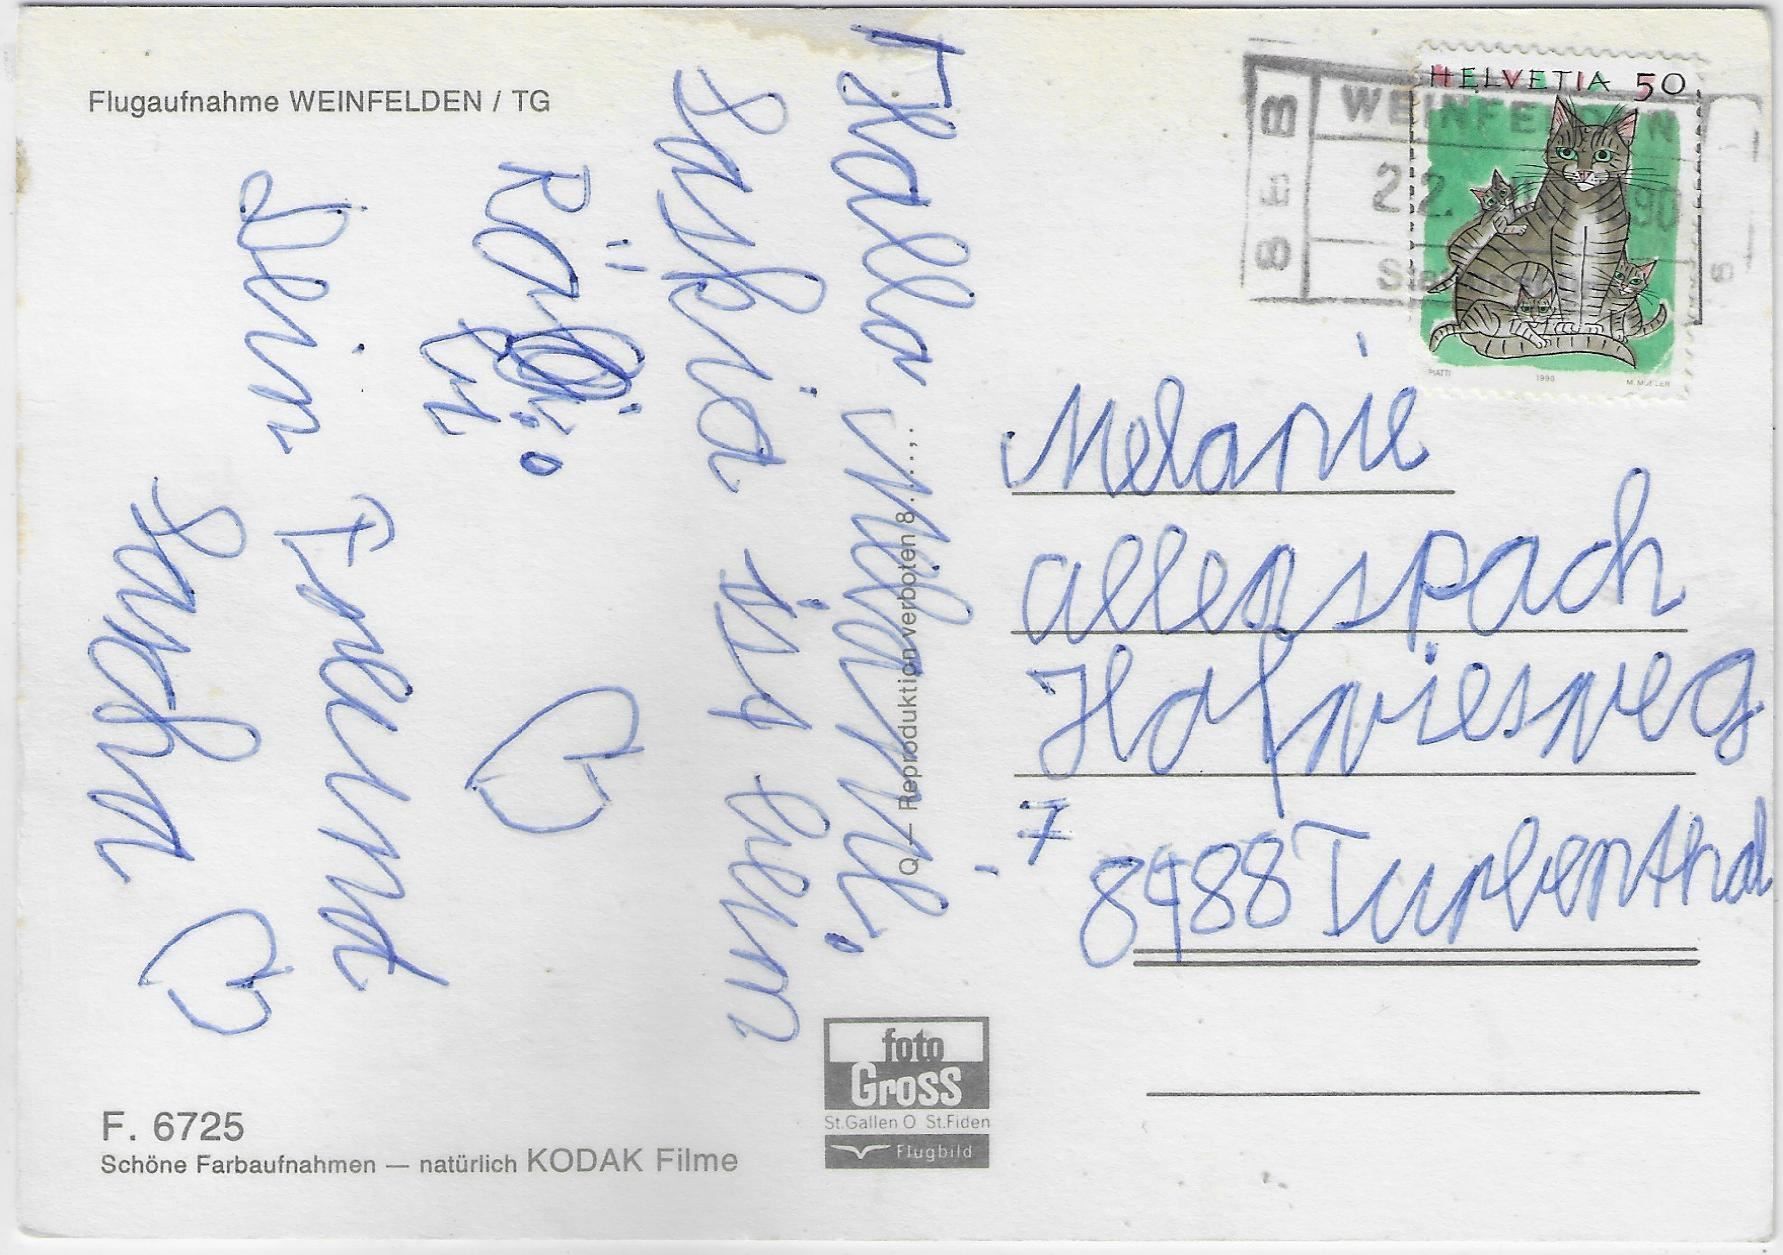 Flugaufnahme WEINFELDEN / TG
Hallo Melanie.
Saskia ist beim
Dein Freund
Sascha
F. 6725
Schöne Farbaufnahmen — natürlich KODAK Filme
Q — Reproduktion verboten 8.....
foto
Gross
St.Gallen O St.Fiden
Flugbild
HELVETIA 50
PIATTI 1990 M. MÜLLER
SBB
WEINFELDEN
22. 90
Melanie
allenspach
Hofwiesweg
7
8488 Turbenthal